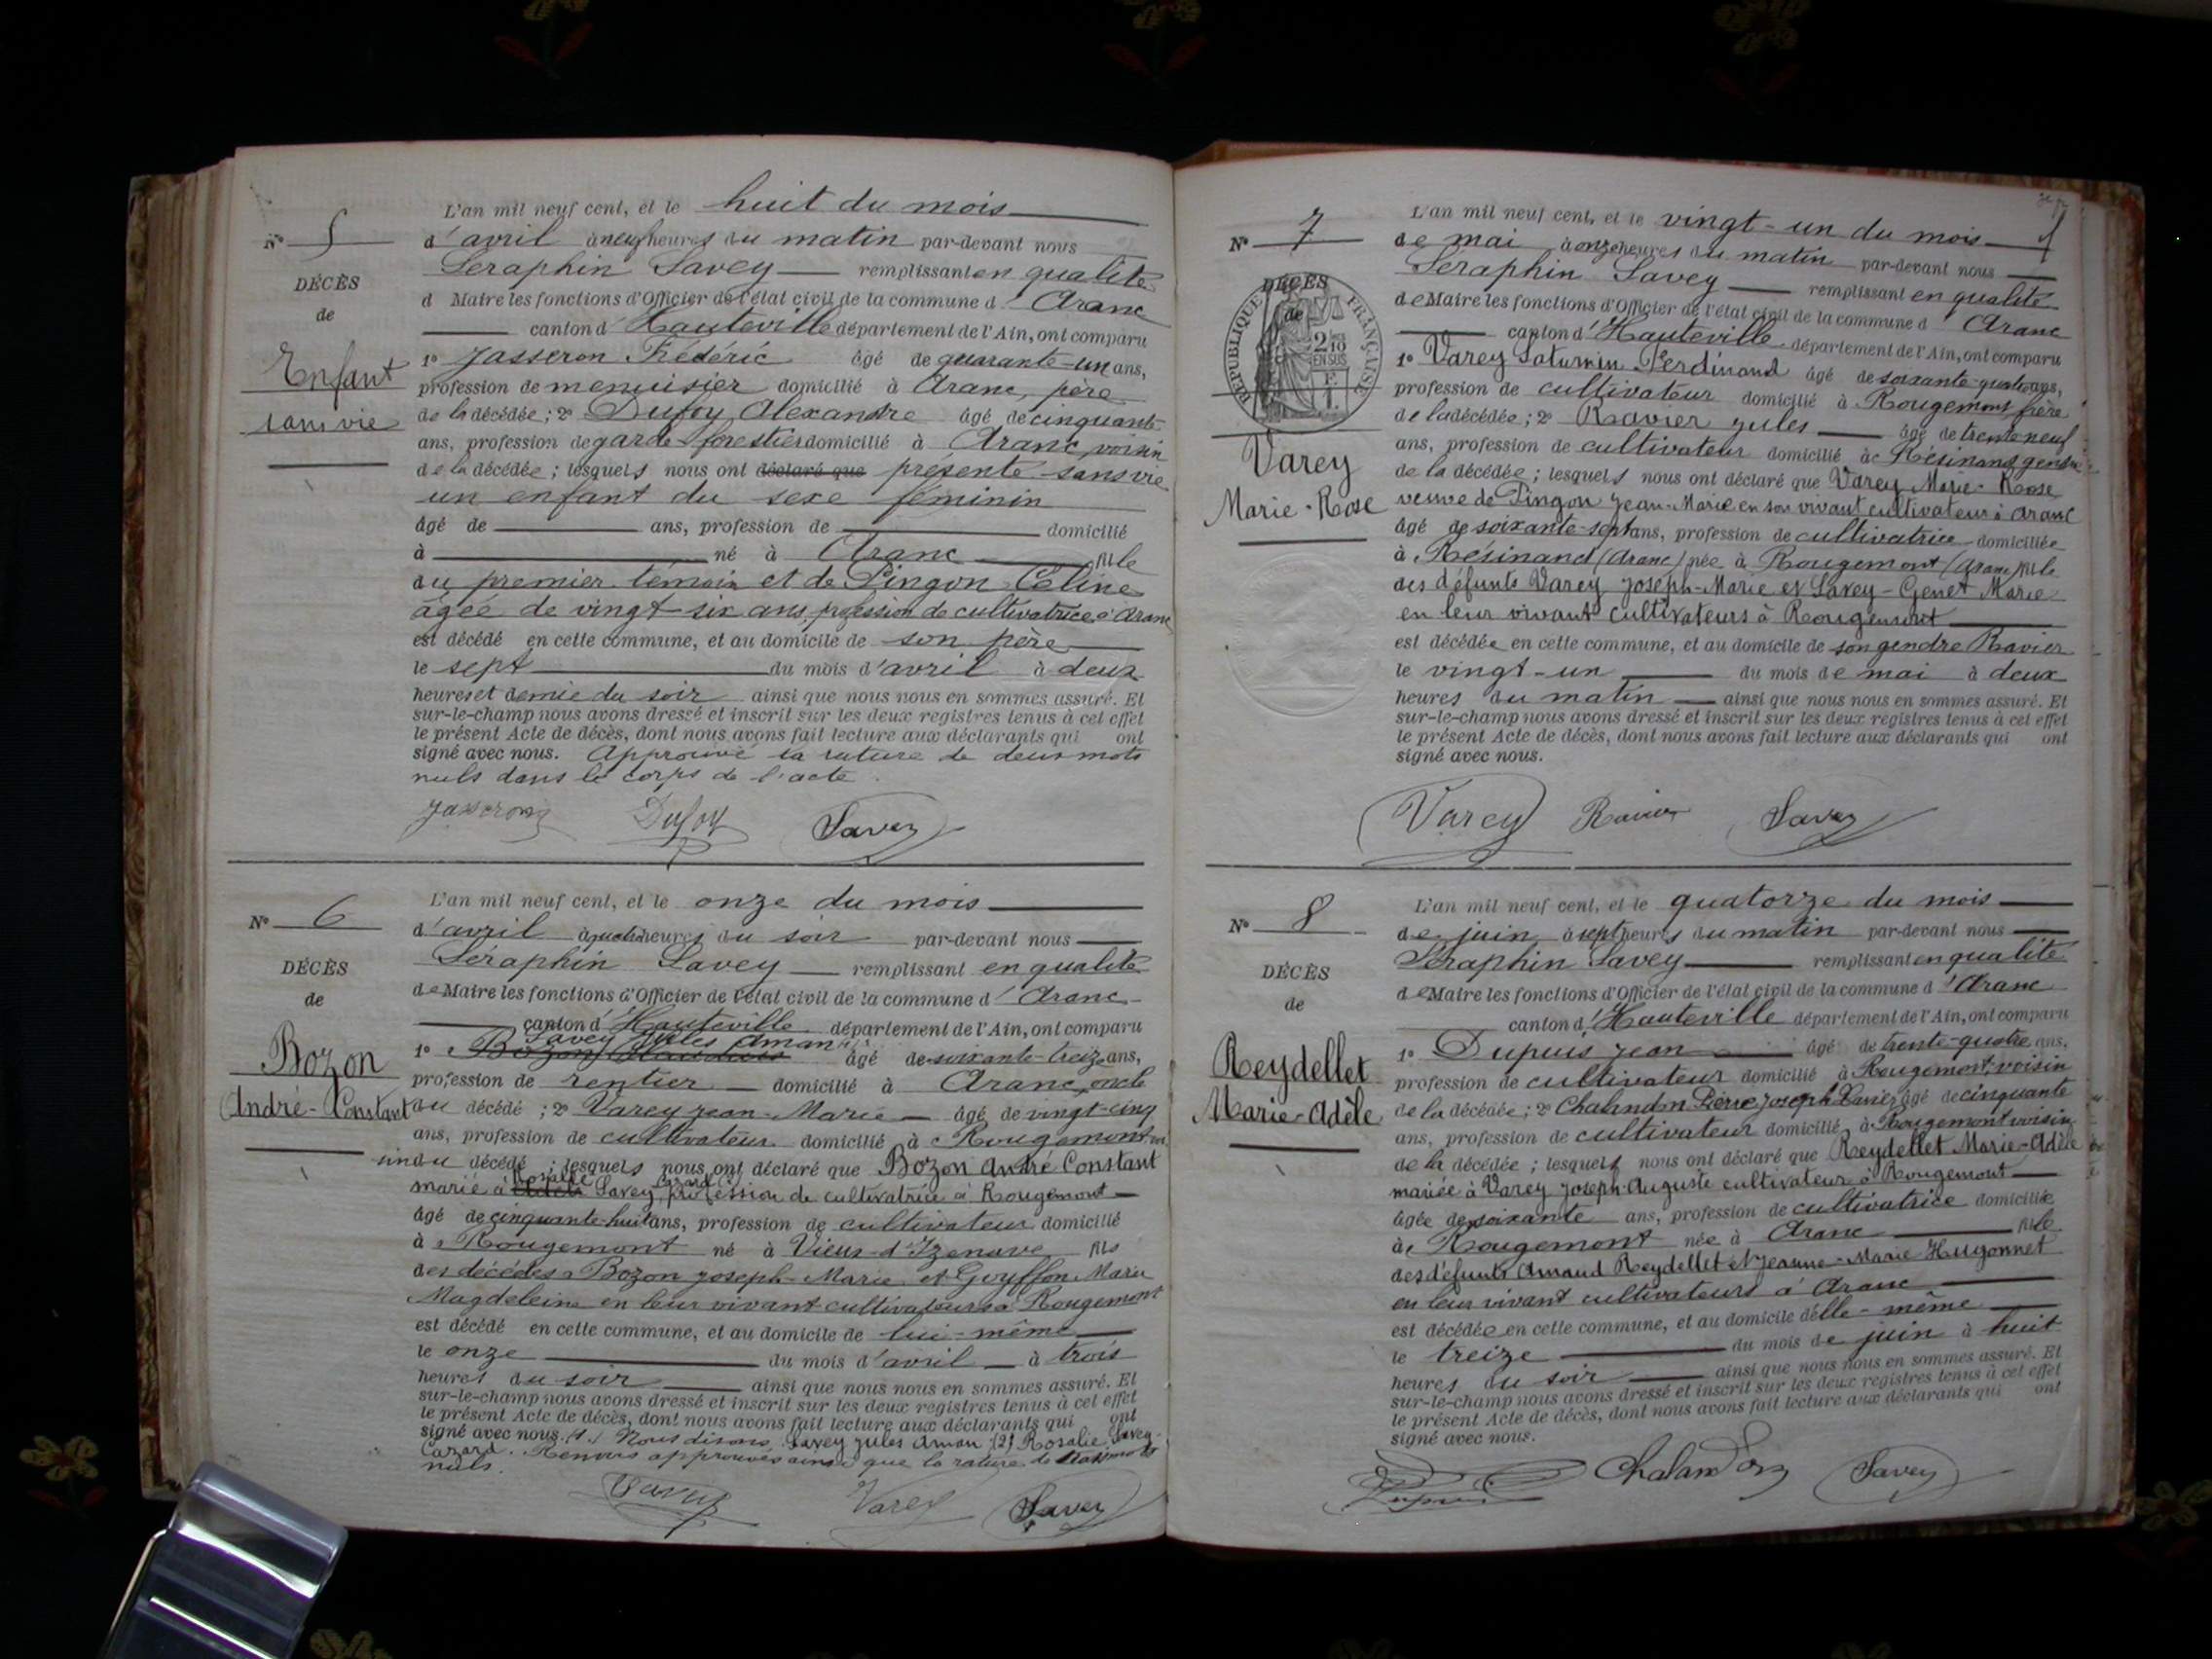 N° 5
DÉCÈS
de
Enfant
sans vie
L'an mil neuf cent, et le huit du mois
d'avril à neuf heures du matin par-devant nous
Séraphin Savey remplissant en qualité
d Maire les fonctions d'Officier de l'état civil de la commune d'Aranc
canton d'Hauteville département de l'Ain, ont comparu
1° Jasseron Frédéric âgé de quarante-un ans,
profession de menuisier domicilié à Aranc, père
de la décédée; 2° Dufoy Alexandre âgé de cinquante
ans, profession de garde forestier domicilié à Aranc, voisin
de la décédée; lesquels nous ont déclaré que présenté sans vie
un enfant du sexe féminin
âgé de ans, profession de domicilié
à né à Aranc fille
du premier témoin et de Pingon Céline
âgée de vingt-six ans, profession de cultivatrice à Aranc
est décédé en cette commune, et au domicile de son père
le sept du mois d'avril à deux
heures et demie du soir ainsi que nous nous en sommes assuré. Et
sur-le-champ nous avons dressé et inscrit sur les deux registres tenus à cet effet
le présent Acte de décès, dont nous avons fait lecture aux déclarants qui ont
signé avec nous. Approuvé la rature de deux mots
nuls dans le corps de l'acte
Jasseron Dufoy Savey
N° 6
DÉCÈS
de
Bozon
André-Constant
L'an mil neuf cent, et le onze du mois
d'avril à quatre heures du soir par-devant nous
Séraphin Savey remplissant en qualité
de Maire les fonctions d'Officier de l'état civil de la commune d'Aranc
canton d'Hauteville département de l'Ain, ont comparu
Savey Jules Aman
1° Bozon âgé de soixante-treize ans,
profession de rentier domicilié à Aranc, oncle
du décédé; 2° Varey Jean-Marie âgé de vingt-cinq
ans, profession de cultivateur domicilié à Rougemont voi
sin du décédé; lesquels nous ont déclaré que Bozon André Constant
Rosalie Cazard
marié à Savey profession de cultivatrice à Rougemont
âgé de cinquante-huit ans, profession de cultivateur domicilié
à Rougemont né à Vieux-d'Izenave fils
des décédés Bozon Joseph-Marie et Goyffon Marie
Magdeleine en leur vivant cultivateurs à Rougemont
est décédé en cette commune, et au domicile de lui-même
le onze du mois d'avril à trois
heures du soir ainsi que nous nous en sommes assuré. Et
sur-le-champ nous avons dressé et inscrit sur les deux registres tenus à cet effet
le présent Acte de décès, dont nous avons fait lecture aux déclarants qui ont
signé avec nous. (1) Nous disons: Savey Jules Aman (2) Rosalie Savey
Cazard. Renvois approuvés ainsi que la rature de trois mots
nuls.
Savey Varey Savey
N° 7
DÉCÈS
de
RÉPUBLIQUE FRANÇAISE
2/10
EN SUS
Varey
Marie-Rose
L'an mil neuf cent, et le vingt-un du mois
de mai à onze heures du matin par-devant nous
Séraphin Savey remplissant en qualité
de Maire les fonctions d'Officier de l'état civil de la commune d'Aranc
canton d'Hauteville département de l'Ain, ont comparu
1° Varey Saturnin Ferdinand âgé de soixante-quatre ans,
profession de cultivateur domicilié à Rougemont frère
de la décédée; 2° Ravier Jules âgé de trente neuf
ans, profession de cultivateur domicilié à Résinand gendre
de la décédée; lesquels nous ont déclaré que Varey Marie-Rose
veuve de Pingon Jean-Marie en son vivant cultivateur à Aranc
âgé de soixante-sept ans, profession de cultivatrice domiciliée
à Résinand (Aranc) née à Rougemont (Aranc) fille
des défunts Varey Joseph-Marie et Savey-Genet Marie
en leur vivant cultivateurs à Rougemont
est décédée en cette commune, et au domicile de son gendre Ravier
le vingt-un du mois de mai à deux
heures du matin ainsi que nous nous en sommes assuré. Et
sur-le-champ nous avons dressé et inscrit sur les deux registres tenus à cet effet
le présent Acte de décès, dont nous avons fait lecture aux déclarants qui ont
signé avec nous.
Varey Ravier Savey
N° 8
DÉCÈS
de
Reydellet
Marie-Adèle
L'an mil neuf cent, et le quatorze du mois
de juin à sept heures du matin par-devant nous
Séraphin Savey remplissant en qualité
de Maire les fonctions d'Officier de l'état civil de la commune d'Aranc
canton d'Hauteville département de l'Ain, ont comparu
1° Dupuis Jean âgé de trente-quatre ans,
profession de cultivateur domicilié à Rougemont voisin
de la décédée; 2° Chalandon Pierre Joseph Xavier âgé de cinquante
ans, profession de cultivateur domicilié à Rougemont voisin
de la décédée; lesquels nous ont déclaré que Reydellet Marie-Adèle
mariée à Varey Joseph-Auguste cultivateur à Rougemont
âgée de soixante ans, profession de cultivatrice domiciliée
à Rougemont née à Aranc fille
des défunts Amand Reydellet et Jeanne-Marie Hugonnet
en leur vivant cultivateurs à Aranc
est décédée en cette commune, et au domicile d'elle-même
le treize du mois de juin à huit
heures du soir ainsi que nous nous en sommes assuré. Et
sur-le-champ nous avons dressé et inscrit sur les deux registres tenus à cet effet
le présent Acte de décès, dont nous avons fait lecture aux déclarants qui ont
signé avec nous.
Dupuis Chalandon Savey